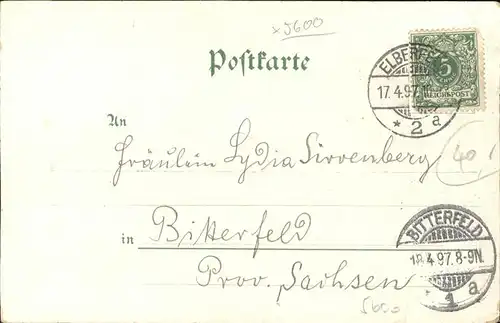 x 5600
Postkarte
5
REICHSPOST
ELBERFELD
17.4.97.
* 2 a
An
Fräulein Lydia Sirrenberg
40,
in Bitterfeld
Prov. Sachsen
BITTERFELD
18.4.97.8-9N.
1 a